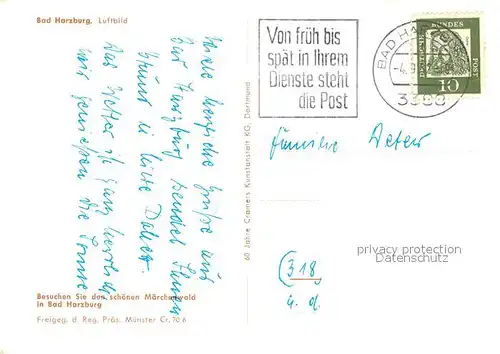 Bad Harzburg, Luftbild
Viele herzliche Grüße aus
Bad Harzburg sendet Ihnen
Das Wetter ist ganz herrlich
wir genießen die Sonne
Besuchen Sie den schönen Märchenwald
in Bad Harzburg
Freigeg. d. Reg. Präs. Münster Cr. 70,6
60 Jahre Cramers Kunstanstalt KG, Dortmund
Von früh bis
spät in Ihrem
Dienste steht
die Post
BAD HA
-4.9.
3388
DEUTSCHE BUNDESPOST
10
Familie
(318)
u. d.
privacy protection
Datenschutz